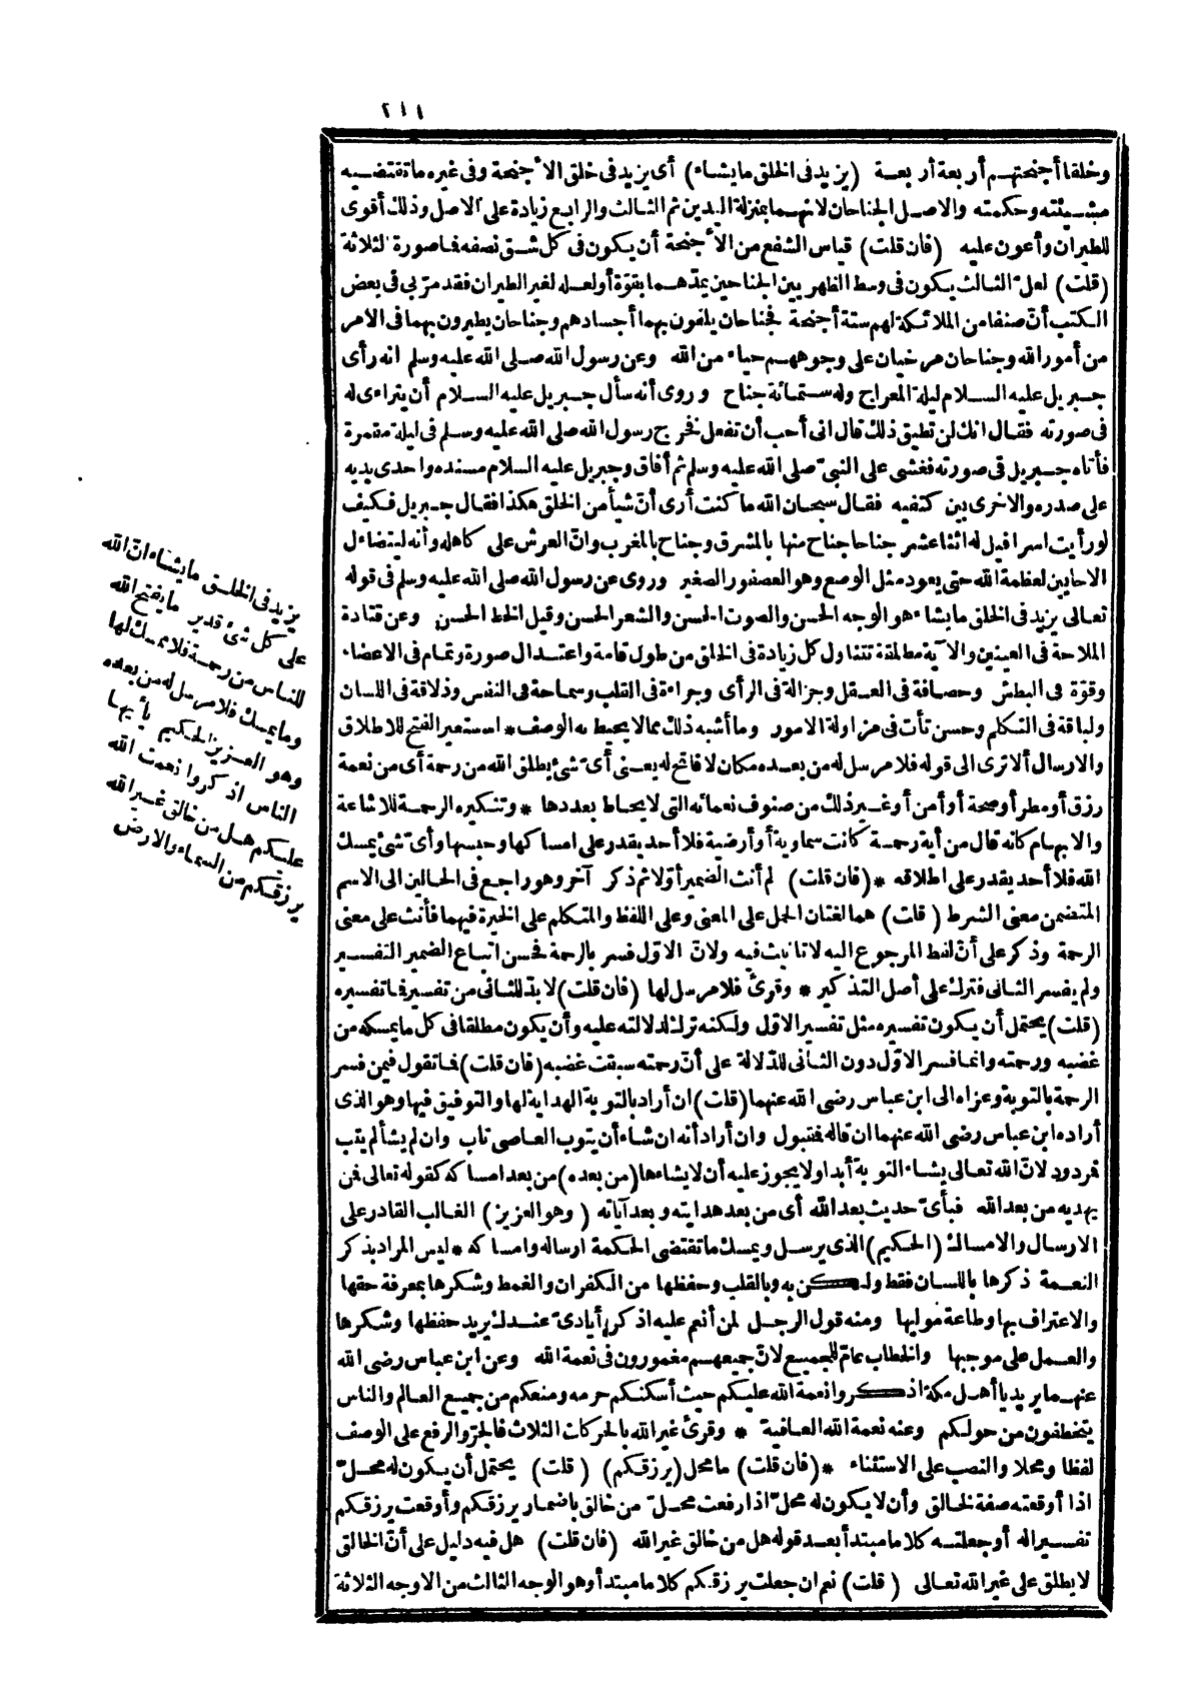 ٢١١
وخلقا أجنحتهم أربعة أربعة (يزيد فى الخلق ما يشاء) أى يزيد فى خلق الأجنحة وفى غيره ما تقتضيه
مشيئته وحكمته والاصل الجناحان لانهما بمنزلة اليدين ثم الثالث والرابع زيادة على الاصل وذلك أقوى
للطيران وأعون عليه (فان قلت) قياس الشفع من الأجنحة أن يكون فى كل شق نصفه فما صورة الثلاثة
(قلت) لعل الثالث يكون فى وسط الظهر بين الجناحين يمدّهما بقوّة أولعله لغير الطيران فقد مرّ بى فى بعض
الكتب أنّ صنفا من الملائكة لهم ستة أجنحة فجناحان يلفون بهما أجسادهم وجناحان يطيرون بهما فى الامر
من أمور الله وجناحان مرخيان على وجوههم حياء من الله وعن رسول الله صلى الله عليه وسلم انه رأى
جبريل عليه السلام ليلة المعراج وله ستمائة جناح وروى أنه سأل جبريل عليه السلام أن يتراءى له
فى صورته فقال انك لن تطيق ذلك قال انى أحب أن تفعل فخرج رسول الله صلى الله عليه وسلم فى ليلة مقمرة
فأتاه جبريل فى صورته فغشى على النبىّ صلى الله عليه وسلم ثم أفاق وجبريل عليه السلام مسنده واحدى يديه
على صدره والاخرى بين كتفيه فقال سبحان الله ما كنت أرى أنّ شيأ من الخلق هكذا فقال جبريل فكيف
لو رأيت اسرافيل له اثنا عشر جناحا جناح منها بالمشرق وجناح بالمغرب وانّ العرش على كاهله وأنه ليتضاءل
الاحايين لعظمة الله حتى يعود مثل الوصع وهو العصفور الصغير وروى عن رسول الله صلى الله عليه وسلم فى قوله
تعالى يزيد فى الخلق ما يشاء هو الوجه الحسن والصوت الحسن والشعر الحسن وقيل الخط الحسن وعن قتادة
الملاحة فى العينين والآية مطلقة تتناول كل زيادة فى الخلق من طول قامة واعتدال صورة وتمام فى الاعضاء
وقوّة فى البطش وحصافة فى العقل وجزالة فى الرأى وجراءة فى القلب وسماحة فى النفس وذلاقة فى اللسان
ولباقة فى التكلم وحسن تأت فى مزاولة الامور وما أشبه ذلك مما لا يحيط به الوصف * استعير الفتح للاطلاق
والارسال ألا ترى الى قوله فلا مرسل له من بعده مكان لا فاتح له يعنى أىّ شئ يطلق الله من رحمة أى من نعمة
رزق أو مطر أو صحة أو أمن أو غير ذلك من صنوف نعمائه التى لا يحاط بعددها * وتنكيره الرحمة للاشاعة
والابهام كانه قال من أية رحمة كانت سماوية أو أرضية فلا أحد يقدر على امساكها وحبسها وأىّ شئ يمسك
الله فلا أحد يقدر على اطلاقه * (فان قلت) لم أنث الضمير أوّلا ثم ذكر آخر وهو راجع فى الحالين الى الاسم
المتضمن معنى الشرط (قلت) هما لغتان الحمل على المعنى وعلى اللفظ والمتكلم على الخيرة فيهما فأنث على معنى
الرحمة وذكر على أنّ لفظ المرجوع اليه لا تأنيث فيه ولانّ الاوّل فسر بالرحمة فحسن اتباع الضمير التفسير
ولم يفسر الثانى فترك على أصل التذكير * وقرئ فلا مرسل لها (فان قلت) لا بدّ للثانى من تفسير فما تفسيره
(قلت) يحتمل أن يكون تفسيره مثل تفسير الاوّل ولكنه ترك لدلالته عليه وأن يكون مطلقا فى كل ما يمسكه من
غضبه ورحمته وانما فسر الاوّل دون الثانى للدّلالة على أنّ رحمته سبقت غضبه (فان قلت) فما تقول فيمن فسر
الرحمة بالتوبة وعزاه الى ابن عباس رضى الله عنهما (قلت) ان أراد بالتوبة الهداية لها والتوفيق فيها وهو الذى
أراده ابن عباس رضى الله عنهما ان قاله فمقبول وان أراد أنه ان شاء أن يتوب العاصى تاب وان لم يشأ لم يتب
فمردود لانّ الله تعالى يشاء التوبة أبدا ولا يجوز عليه أن لا يشاءها (من بعده) من بعد امساكه كقوله تعالى فمن
يهديه من بعد الله فبأىّ حديث بعد الله أى من بعد هدايته وبعد آياته (وهو العزيز) الغالب القادر على
الارسال والامساك (الحكيم) الذى يرسل ويمسك ما تقتضى الحكمة ارساله وامساكه * ليس المراد بذكر
النعمة ذكرها باللسان فقط ولكن به وبالقلب وحفظها من الكفران والغمط وشكرها بمعرفة حقها
والاعتراف بها وطاعة موليها ومنه قول الرجل لمن أنعم عليه اذكر أيادىّ عندك يريد حفظها وشكرها
والعمل على موجبها والخطاب عامّ للجميع لانّ جميعهم مغمورون فى نعمة الله وعن ابن عباس رضى الله
عنهما يريد يا أهل مكة اذكروا نعمة الله عليكم حيث أسكنكم حرمه ومنعكم من جميع العالم والناس
يتخطفون من حولكم وعنه نعمة الله العافية * وقرئ غير الله بالحركات الثلاث فالجرّ والرفع على الوصف
لفظا ومحلا والنصب على الاستثناء * (فان قلت) ما محل (يرزقكم) (قلت) يحتمل أن يكون له محلّ
اذا أوقعته صفة لخالق وأن لا يكون له محلّ اذا رفعت محلّ من خالق باضمار يرزقكم وأوقعت يرزقكم
تفسيرا له أو جعلته كلاما مبتدأ بعد قوله هل من خالق غير الله (فان قلت) هل فيه دليل على أنّ الخالق
لا يطلق على غير الله تعالى (قلت) نعم ان جعلت يرزقكم كلاما مبتدأ وهو الوجه الثالث من الاوجه الثلاثة
يزيد فى الخلق ما يشاء انّ الله
على كل شئ قدير ما يفتح الله
للناس من رحمة فلا ممسك لها
وما يمسك فلا مرسل له من بعده
وهو العزيز الحكيم يأيها
الناس اذكروا نعمت الله
عليكم هل من خالق غير الله
يرزقكم من السماء والارض